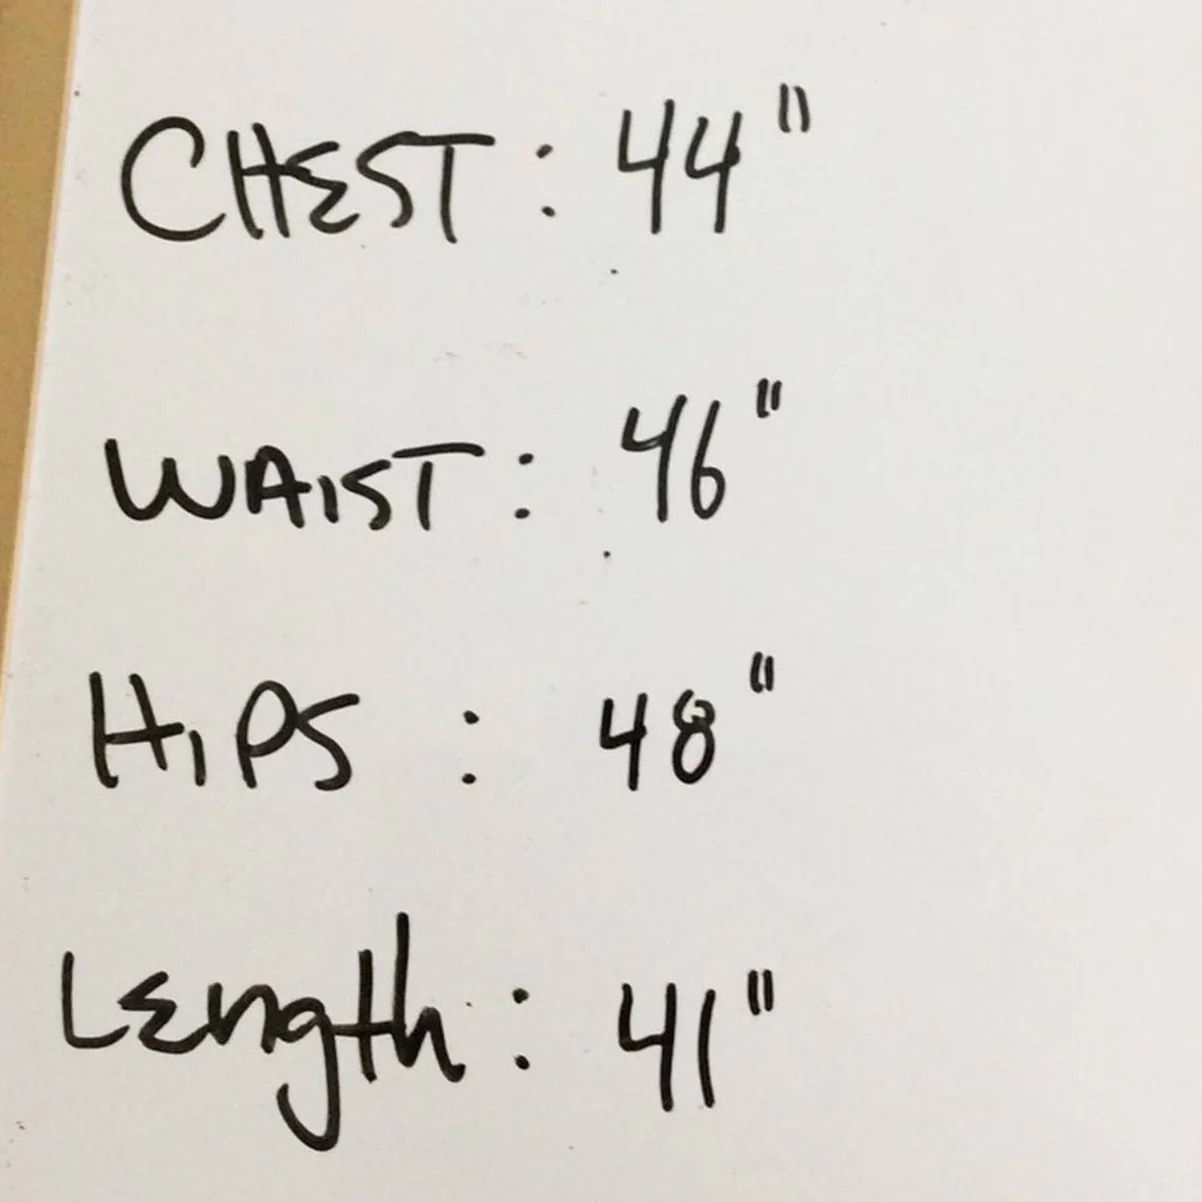 CHEST: 44"
WAIST: 46"
HIPS: 48"
Length: 41"